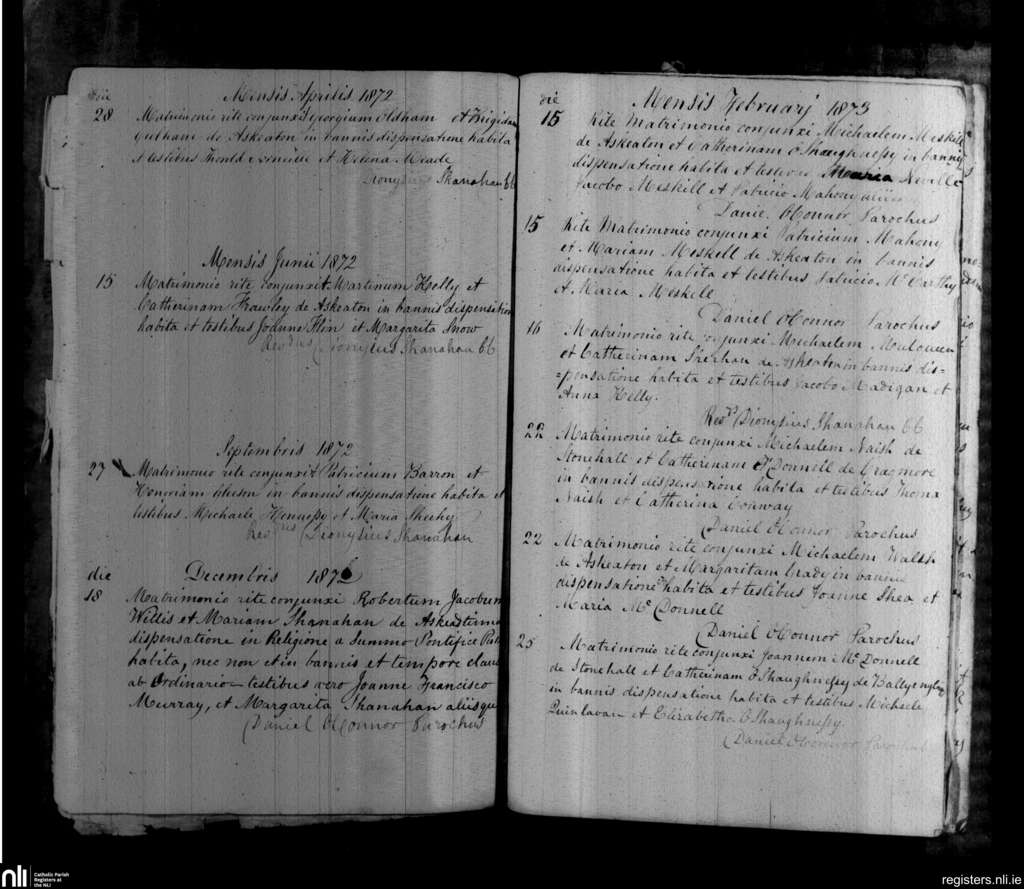 die
Mensis Aprilis 1872
28 Matrimonio rite conjunxi Georgium Oldham et Brigidam
de Askeaton in bannis dispensatione habita
et testibus et Helena Meade
Dionysius Shanahan CC
Mensis Junii 1872
15 Matrimonio rite conjunxit Martinum Kelly et
Catherinam Frawley de Askeaton in bannis dispensatione
habita et testibus Joanne Flin et Margarita Snow
Revdus Dionysius Shanahan CC
Septembris 1872
27 Matrimonio rite conjunxit Patricium Barron et
in bannis dispensatione habita et
testibus Michaele Hennessy et Maria Sheehy
Revdus Dionysius Shanahan
die
Decembris 1872
18 Matrimonio rite conjunxi Robertum Jacobum
Willis et Mariam Shanahan de Askeaton
dispensatione in Religione a Summo Pontifice
habita, nec non etiam in bannis et tempore clauso
ab Ordinario testibus vero Joanne Francisco
Murray, et Margarita Shanahan aliisque
Daniel O'Connor Parochus
die
Mensis Februarj 1873
15 Rite Matrimonio conjunxi Michaelem Meskill
de Askeaton et Catherinam O'Shaughnessy in bannis
dispensatione habita et testibus Neville
Jacobo Meskill et Patricio Mahony
Daniel O'Connor Parochus
15 Rite Matrimonio conjunxi Patricium Mahony
et Mariam Meskell de Askeaton in bannis
dispensatione habita et testibus Patricio McCarthy
et Maria Meskell
Daniel O'Connor Parochus
16 Matrimonio rite conjunxi Michaelem
et Catherinam Sheehan de Askeaton in bannis dis=
=pensatione habita et testibus Jacobo Madigan et
Anna Kelly.
Revds Dionysius Shanahan CC
22 Matrimonio rite conjunxi Michaelem Naish de
Stonehall et Catherinam O'Donnell de Cragmore
in bannis dispensatione habita et testibus Thoma
Naish et Catherina Conway
Daniel O'Connor Parochus
22 Matrimonio rite conjunxi Michaelem Walsh
de Askeaton et Margaritam Grady in bannis
dispensatione habita et testibus Joanne Shea et
Maria McDonnell
Daniel O'Connor Parochus
25 Matrimonio rite conjunxi Joannem McDonnell
de Stonehall et Catherinam O'Shaughnessy de
in bannis dispensatione habita et testibus Michaele
Quinlavan et Elizabetha O'Shaughnessy.
Daniel O'Connor Parochus
nli
Catholic Parish
Registers at
the NLI
registers.nli.ie